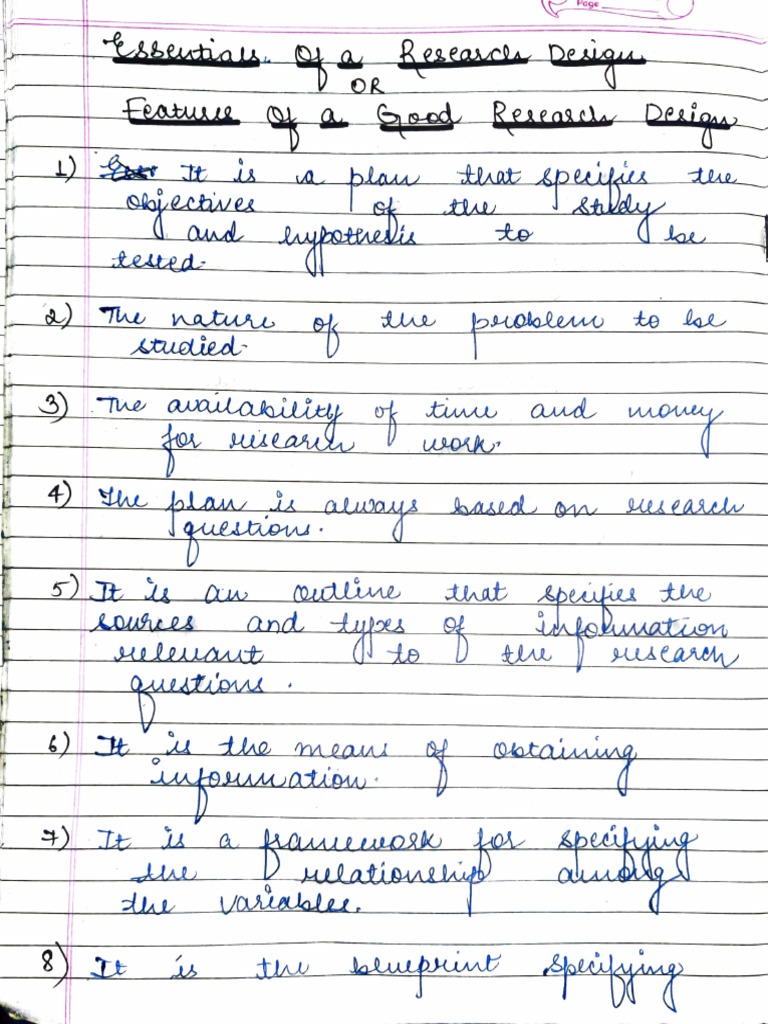 Page
Essentials Of a Research Design
OR
Features Of a Good Research Design
1) It is a plan that specifies the
objectives of the study
and hypothesis to be
tested.
2) The nature of the problem to be
studied.
3) The availability of time and money
for research work.
4) The plan is always based on research
questions.
5) It is an outline that specifies the
sources and types of information
relevant to the research
questions.
6) It is the means of obtaining
information.
7) It is a framework for specifying
the relationship among
the variables.
8) It is the blueprint specifying